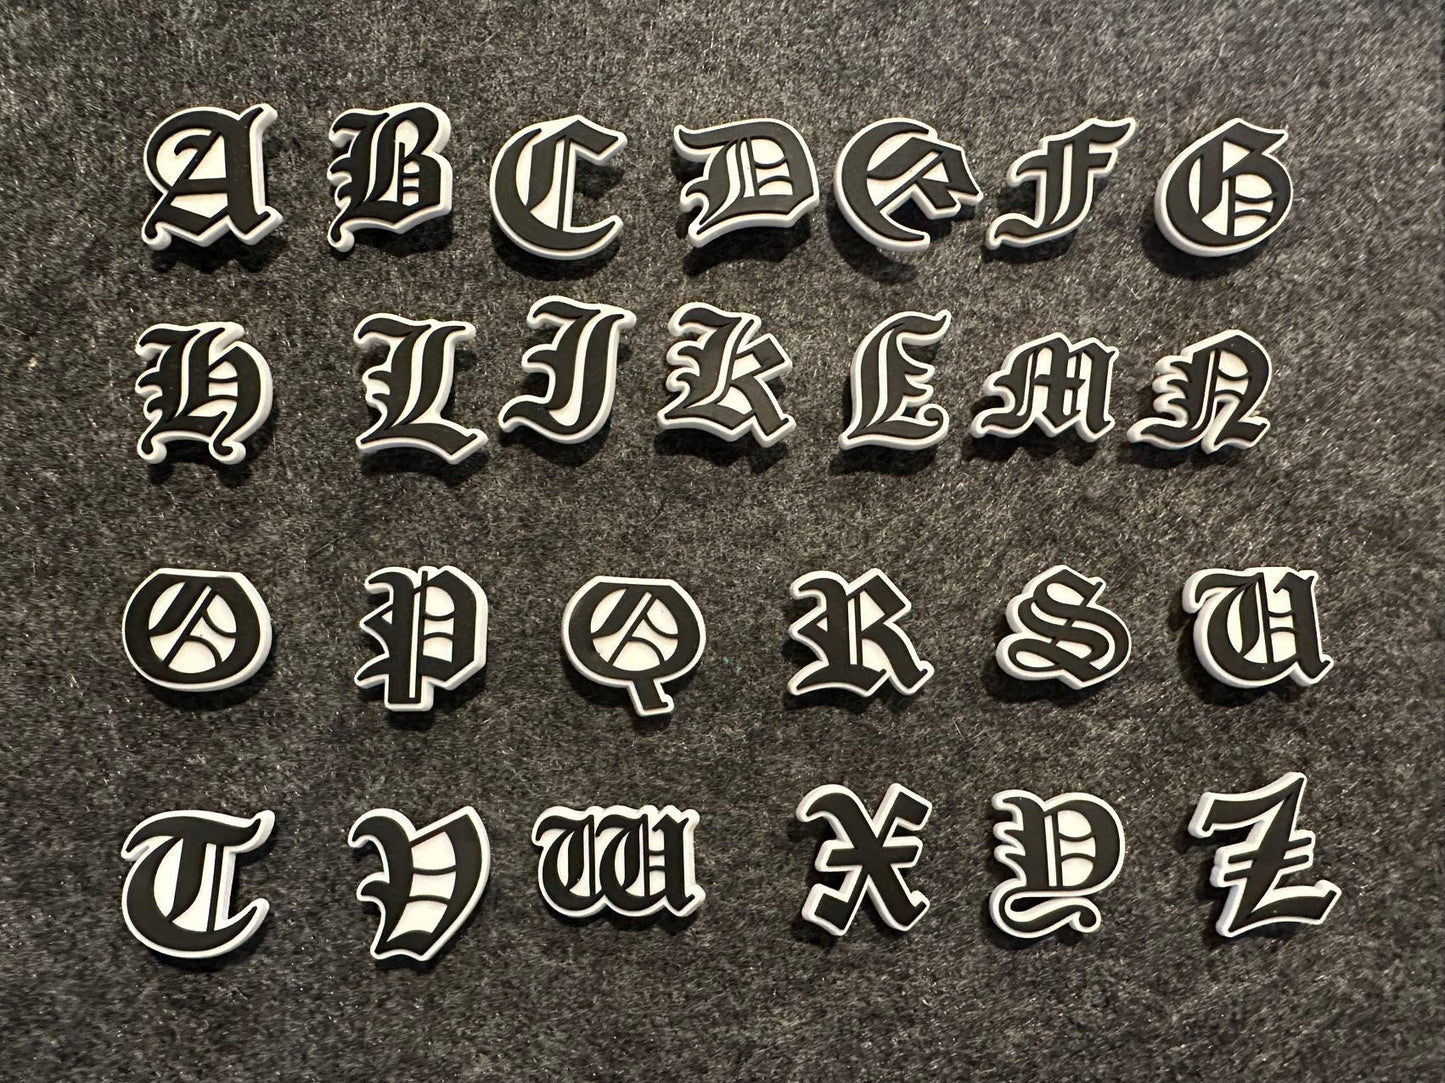 A B C D E F G
H I J K L M N
O P Q R S U
T V W X Y Z